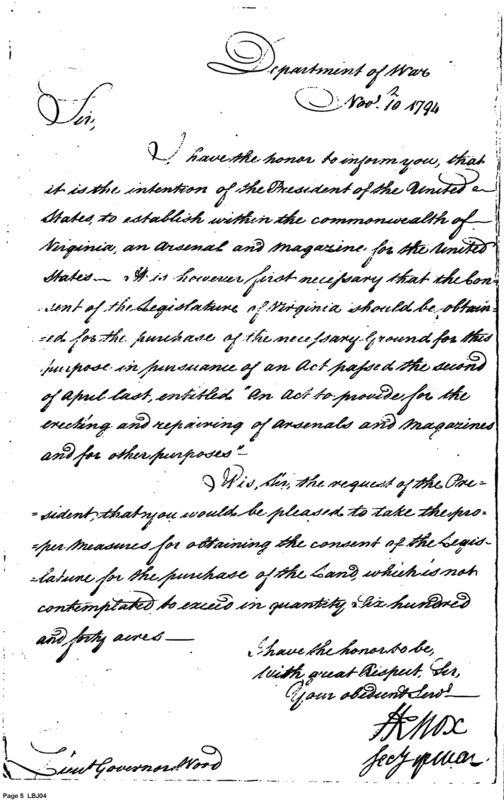 Department of War
Nov.r 10 1794
Sir,
I have the honor to inform you, that
it is the intention of the President of the United
States, to establish within the commonwealth of
Virginia, an Arsenal and Magazine for the United
States — It is however first necessary that the Con-
sent of the Legislature of Virginia should be obtain-
=ed for the purchase of the necessary Ground for this
purpose in pursuance of an Act passed the second
of April last, entitled "An Act to provide for the
erecting and repairing of Arsenals and Magazines
and for other purposes" —
It is, Sir, the request of the Pre-
=sident, that you would be pleased to take the pro-
=per measures for obtaining the consent of the Legis-
=lature for the purchase of the Land, which is not
contemplated to exceed in quantity Six hundred
and forty acres —
I have the honor to be,
With great Respect, Sir,
Your obedient Servt
HKnox
Secy of War
Lieut Governor Wood
Page 5 LBJ04